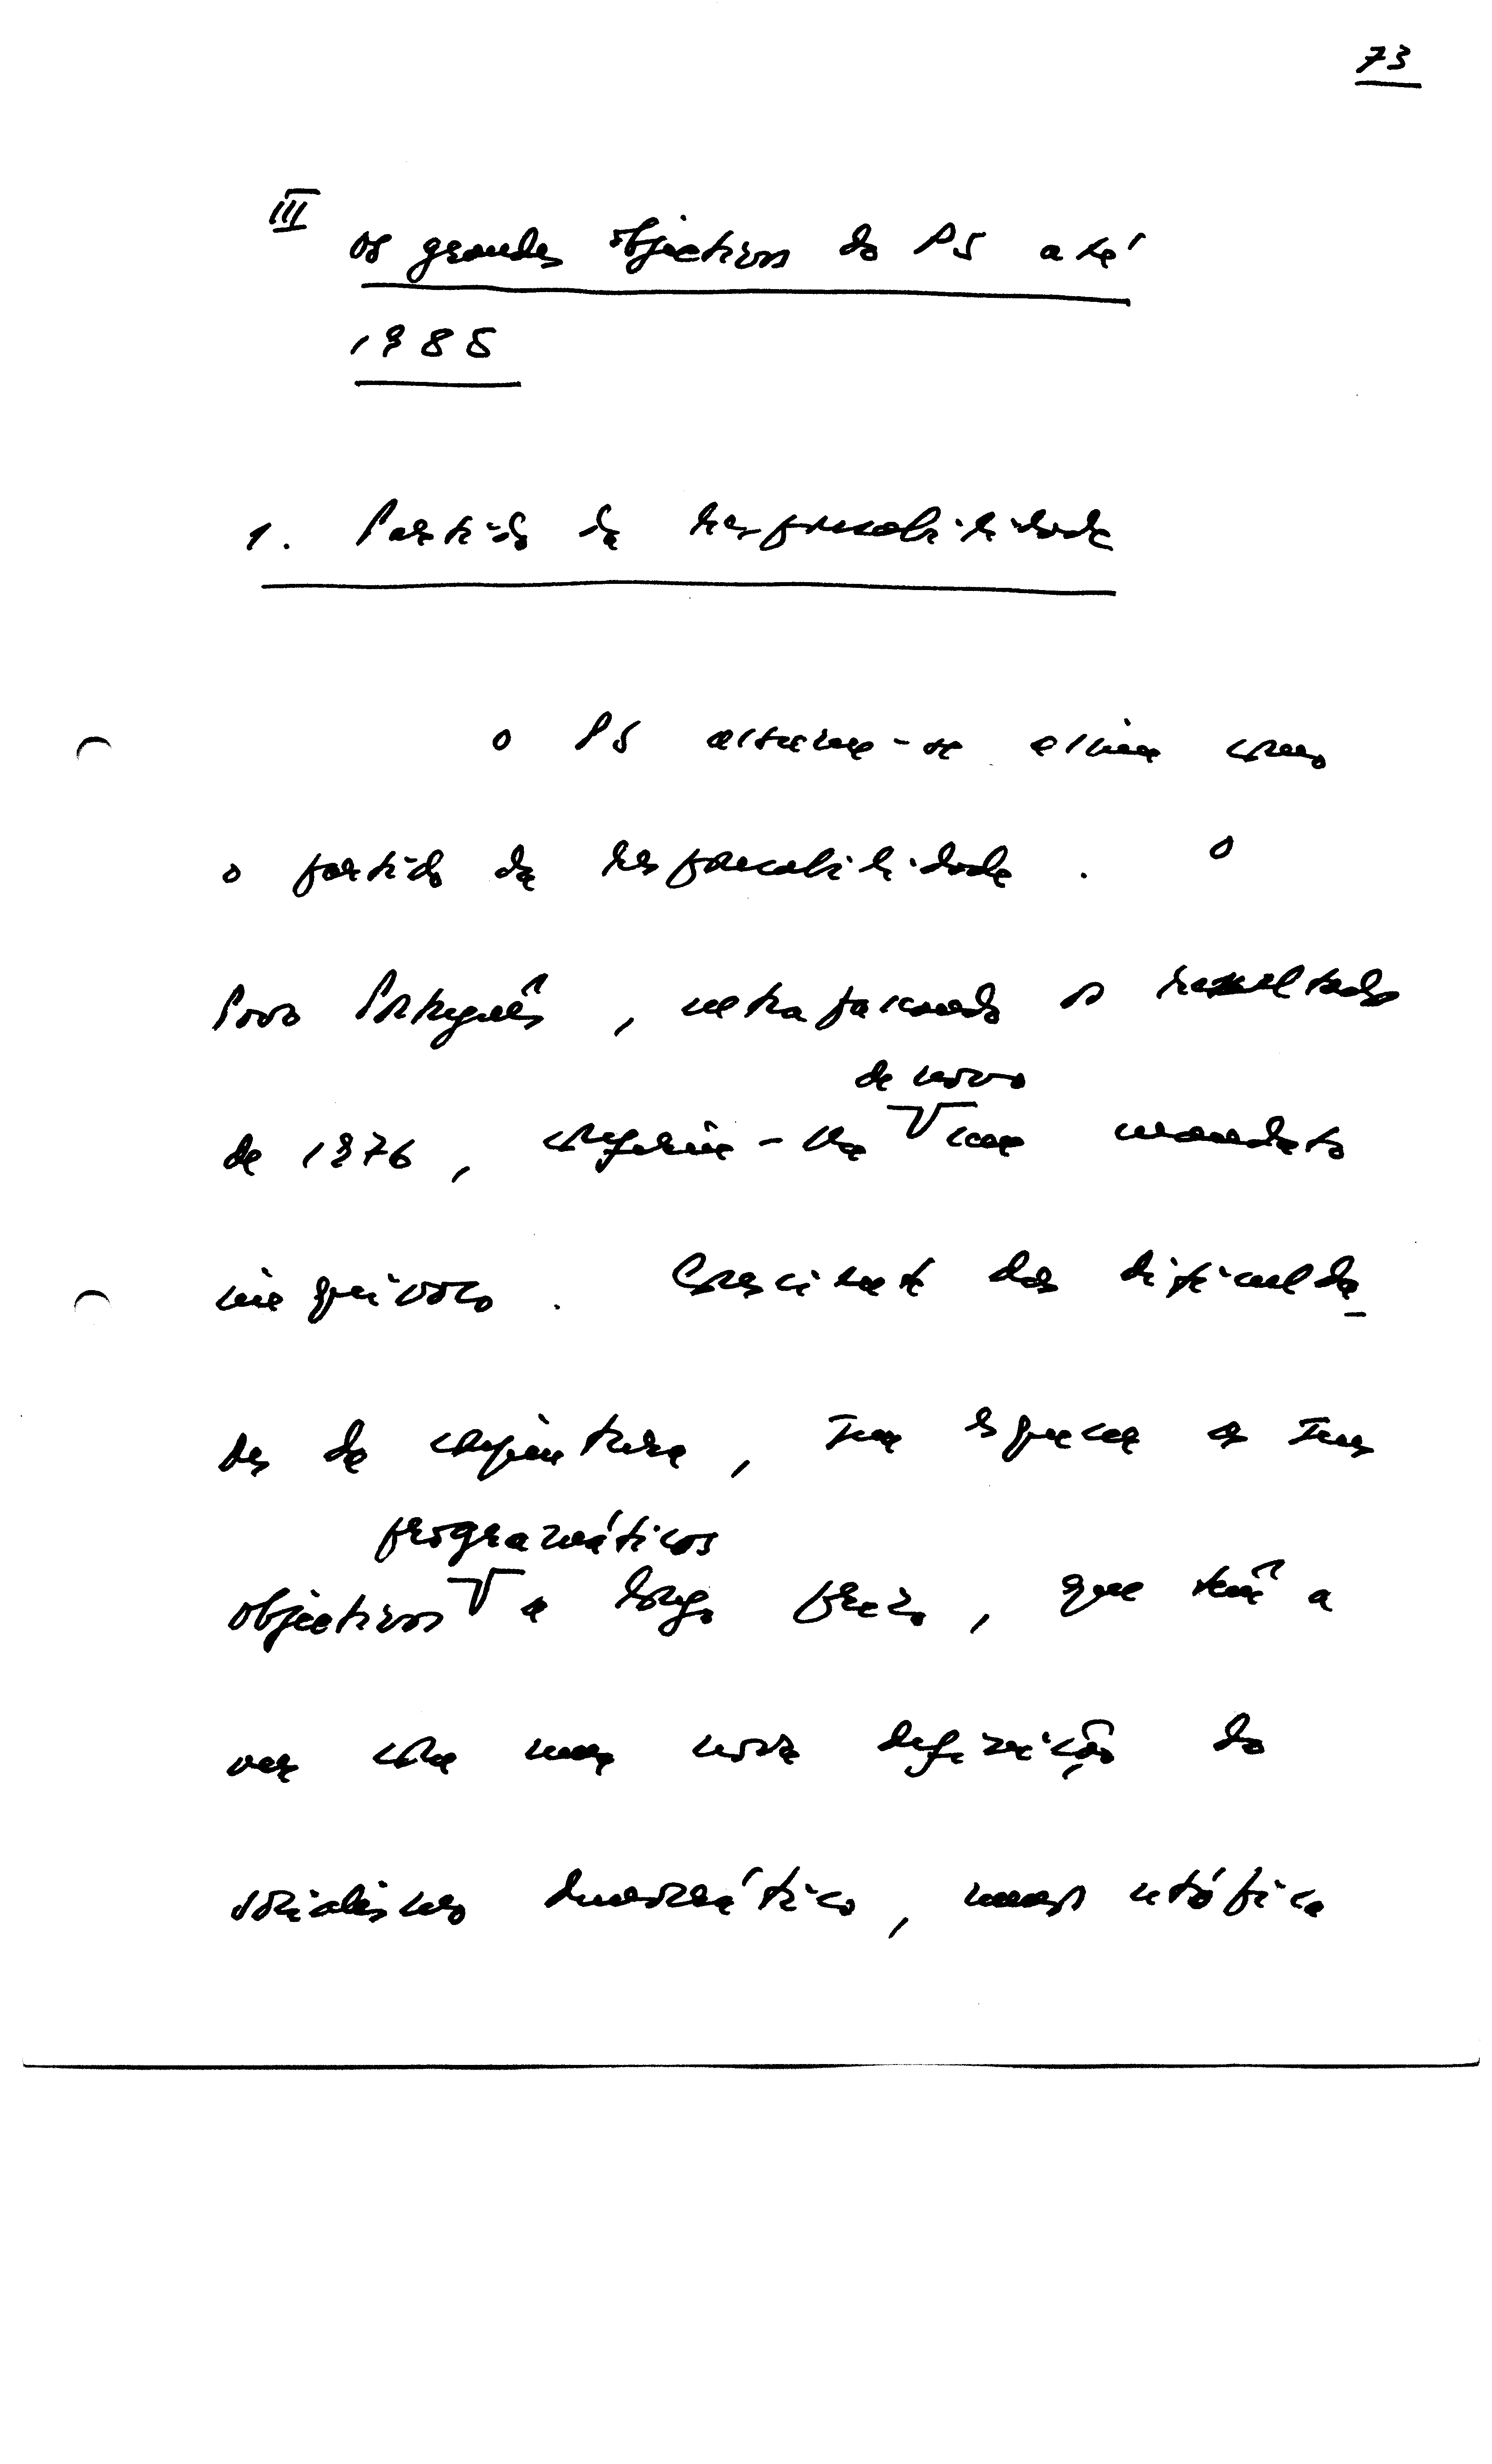 73
III
Os grandes objectivos do PS até
1985
1. Partido da responsabilidade
O PS assume-se assim como
o partido da responsabilidade. O
Povo Português, ultrapassando o resultado
de novo
de 1976, conferiu-lhe um mandato
inequívoco. Consciente das dificulda_
des da conjuntura, sem esquecer os seus
programáticos
objectivos a longo prazo, que têm a
ver com uma nova definição do
socialismo democrático, menos utópica